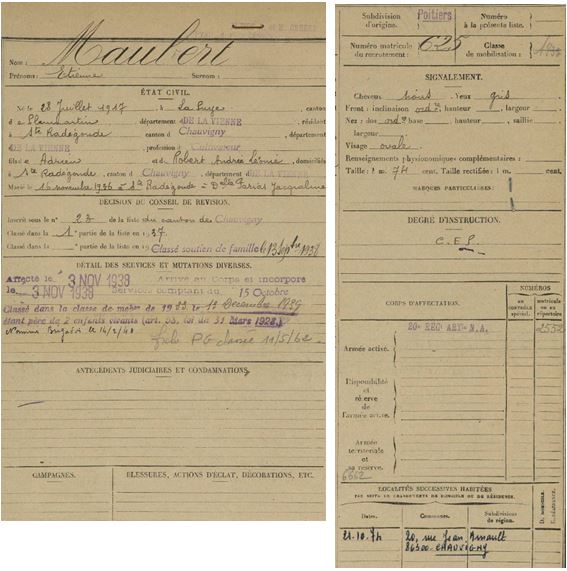 Maubert
Nom :
Prénoms : Etienne Surnom :
ÉTAT CIVIL.
Né le 28 Juillet 1917 à La Puye, canton
de Pleumartin, département DE LA VIENNE, résidant
à Ste Radégonde canton d Chauvigny, département
DE LA VIENNE, profession d Cultivateur
fils de Adrien et de Robert Andréa Léonie, domiciliés
à Ste Radégonde canton d Chauvigny, département DE LA VIENNE
Marié le 16 novembre 1936 à Ste Radégonde à Jacqueline
DÉCISION DU CONSEIL DE REVISION.
Inscrit sous le n° 23 de la liste du canton de Chauvigny
Classé dans la 1e partie de la liste en 1937.
Classé dans la partie de la liste en 19 Classé soutien de famille le 13 1938
DÉTAIL DES SERVICES ET MUTATIONS DIVERSES.
Affecté le 3 NOV 1938 Arrivé au Corps et incorporé
le 3 NOV 1938 Services comptant du 15 Octobre
Classé dans la classe de mobon de 1933 le 13 Décembre 1939
étant père de 2 enfants vivants (art. 58, loi du 31 Mars 1928.)
Nommé Brigadier le 14/2/40
PG 11/5/62
ANTÉCÉDENTS JUDICIAIRES ET CONDAMNATIONS.
CAMPAGNES. BLESSURES, ACTIONS D'ÉCLAT, DÉCORATIONS, ETC.
Subdivision d'origine. Poitiers Numéro à la présente liste.
Numéro matricule du recrutement : 625 Classe de mobilisation :
SIGNALEMENT.
Cheveux noirs Yeux gris
Front : inclinaison ordre, hauteur , largeur
Nez : dos ordre base , hauteur , saillie
largeur
Visage ovale
Renseignements physionomiques complémentaires :
Taille : 1 m. 74 cent. Taille rectifiée : 1 m. cent.
MARQUES PARTICULIÈRES :
DEGRÉ D'INSTRUCTION.
C.E.P.
CORPS D'AFFECTATION.
NUMÉROS
au contrôle spécial. matricule ou au répertoire
20e REG ART N.A. 2552
Armée active.
Disponibilité et réserve de l'armée active.
Armée territoriale et sa réserve.
6662
LOCALITÉS SUCCESSIVES HABITÉES
PAR SUITE DE CHANGEMENTS DE DOMICILE OU DE RÉSIDENCE.
Dates. Communes. Subdivisions de région. D. DOMICILE R. RÉSIDENCE.
21.10.74 20, rue Jean Arnault
86300 CHAUVIGNY